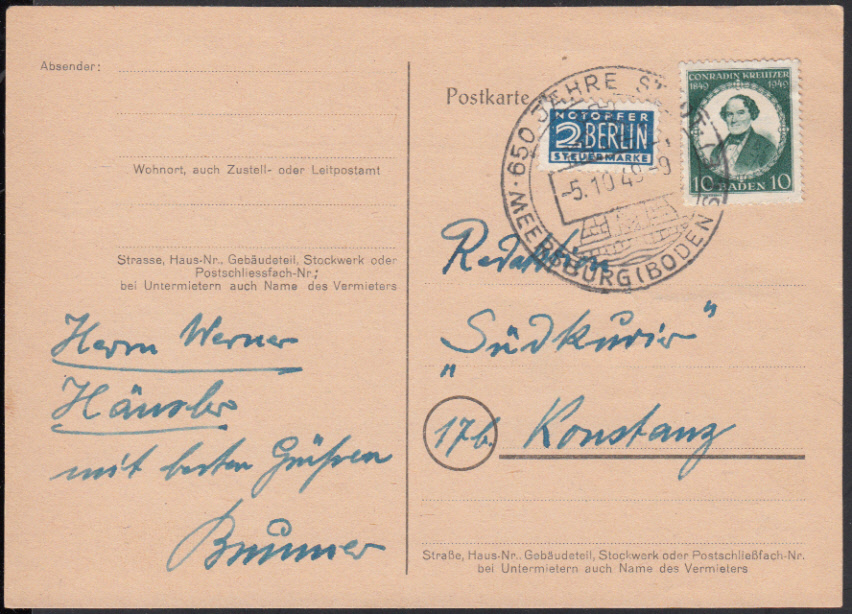 Absender:
Wohnort, auch Zustell- oder Leitpostamt
Strasse, Haus-Nr., Gebäudeteil, Stockwerk oder
Postschliessfach-Nr.;
bei Untermietern auch Name des Vermieters
Herrn Werner
Häusler
mit besten Grüßen
Brunner
Postkarte
NOTOPFER
2 BERLIN
STEUERMARKE
CONRADIN KREUTZER
1849 1949
10 BADEN 10
650 JAHRE STADT
-5.10.49-9
MEERSBURG (BODENS
Redaktion
„Südkurier"
17b. Konstanz
Straße, Haus-Nr., Gebäudeteil, Stockwerk oder Postschließfach-Nr.
bei Untermietern auch Name des Vermieters